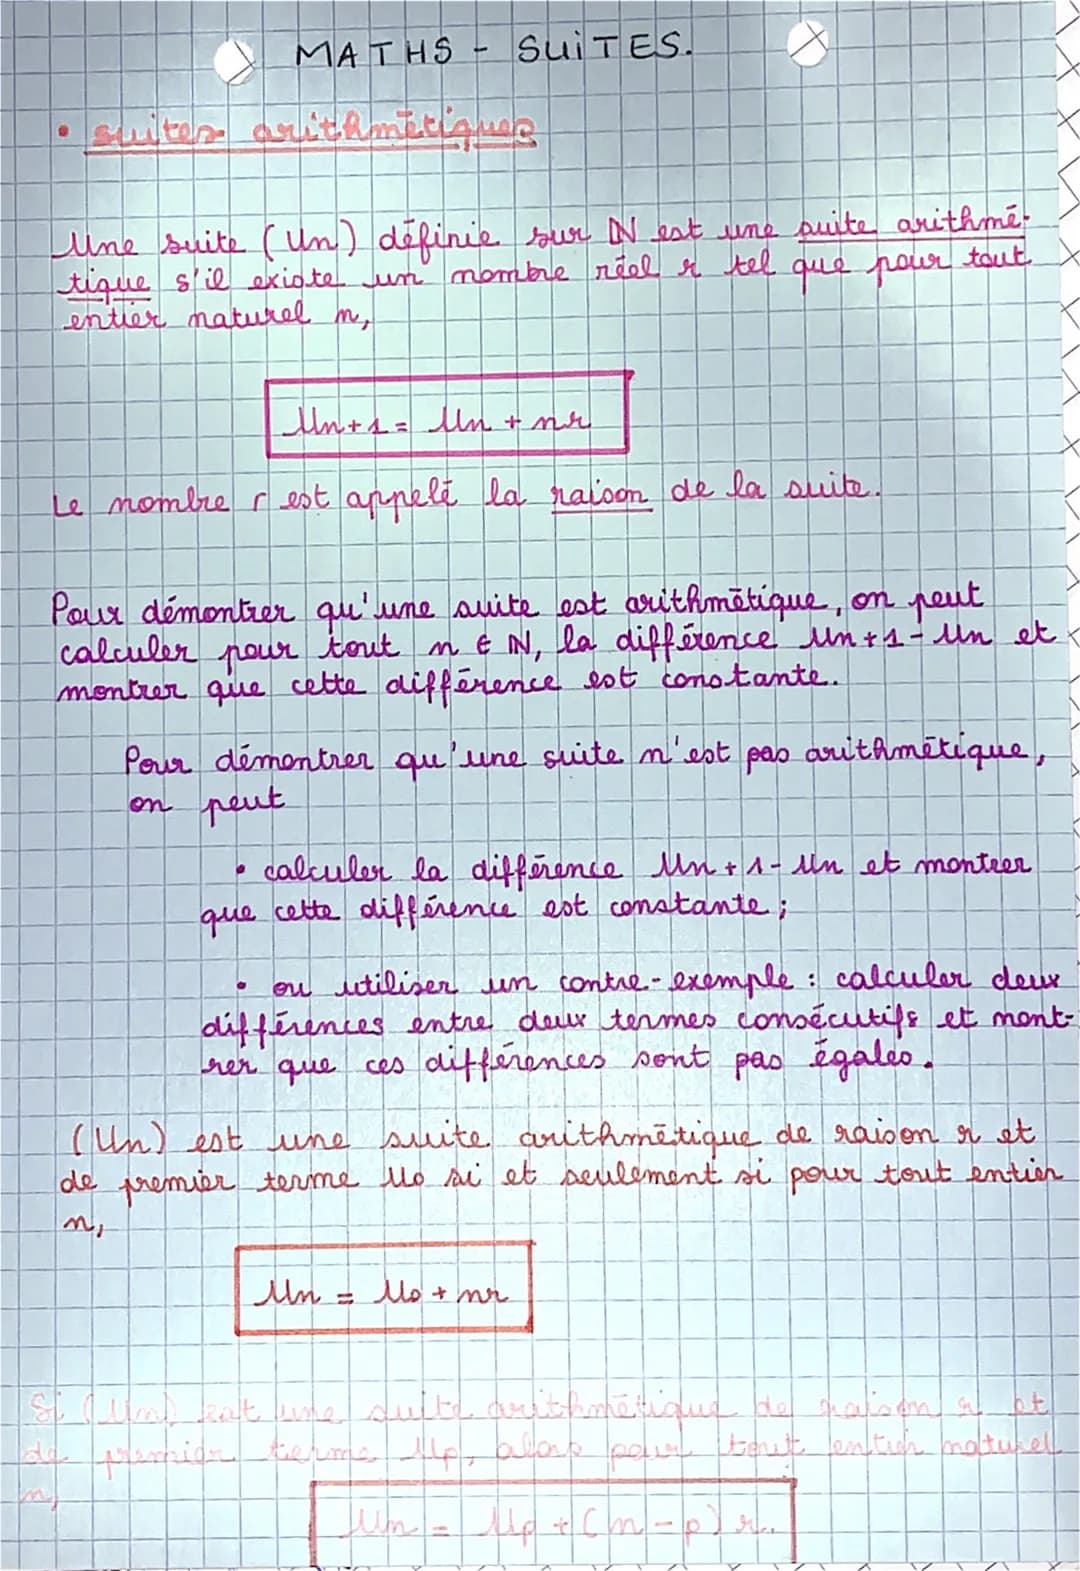 MATHS - SUITES.
• suites arithmétiques
Une suite (Un) définie sur ℕ est une suite arithmé-
tique s'il existe un nombre réel r tel que pour tout
entier naturel n,
Un+1 = Un + nr
Le nombre r est appelé la raison de la suite.
Pour démontrer qu'une suite est arithmétique, on peut
calculer pour tout n ∈ ℕ, la différence Un+1 - Un et
montrer que cette différence est constante.
Pour démontrer qu'une suite n'est pas arithmétique,
on peut
• calculer la différence Un+1 - Un et montrer
que cette différence est constante ;
• ou utiliser un contre-exemple : calculer deux
différences entre deux termes consécutifs et mont-
rer que ces différences sont pas égales.
(Un) est une suite arithmétique de raison r et
de premier terme U0 si et seulement si pour tout entier
n,
Un = U0 + nr
Si (Un) est une suite arithmétique de raison r et
de premier terme Up, alors pour tout entier naturel
n,
Un = Up + (n-p) r.